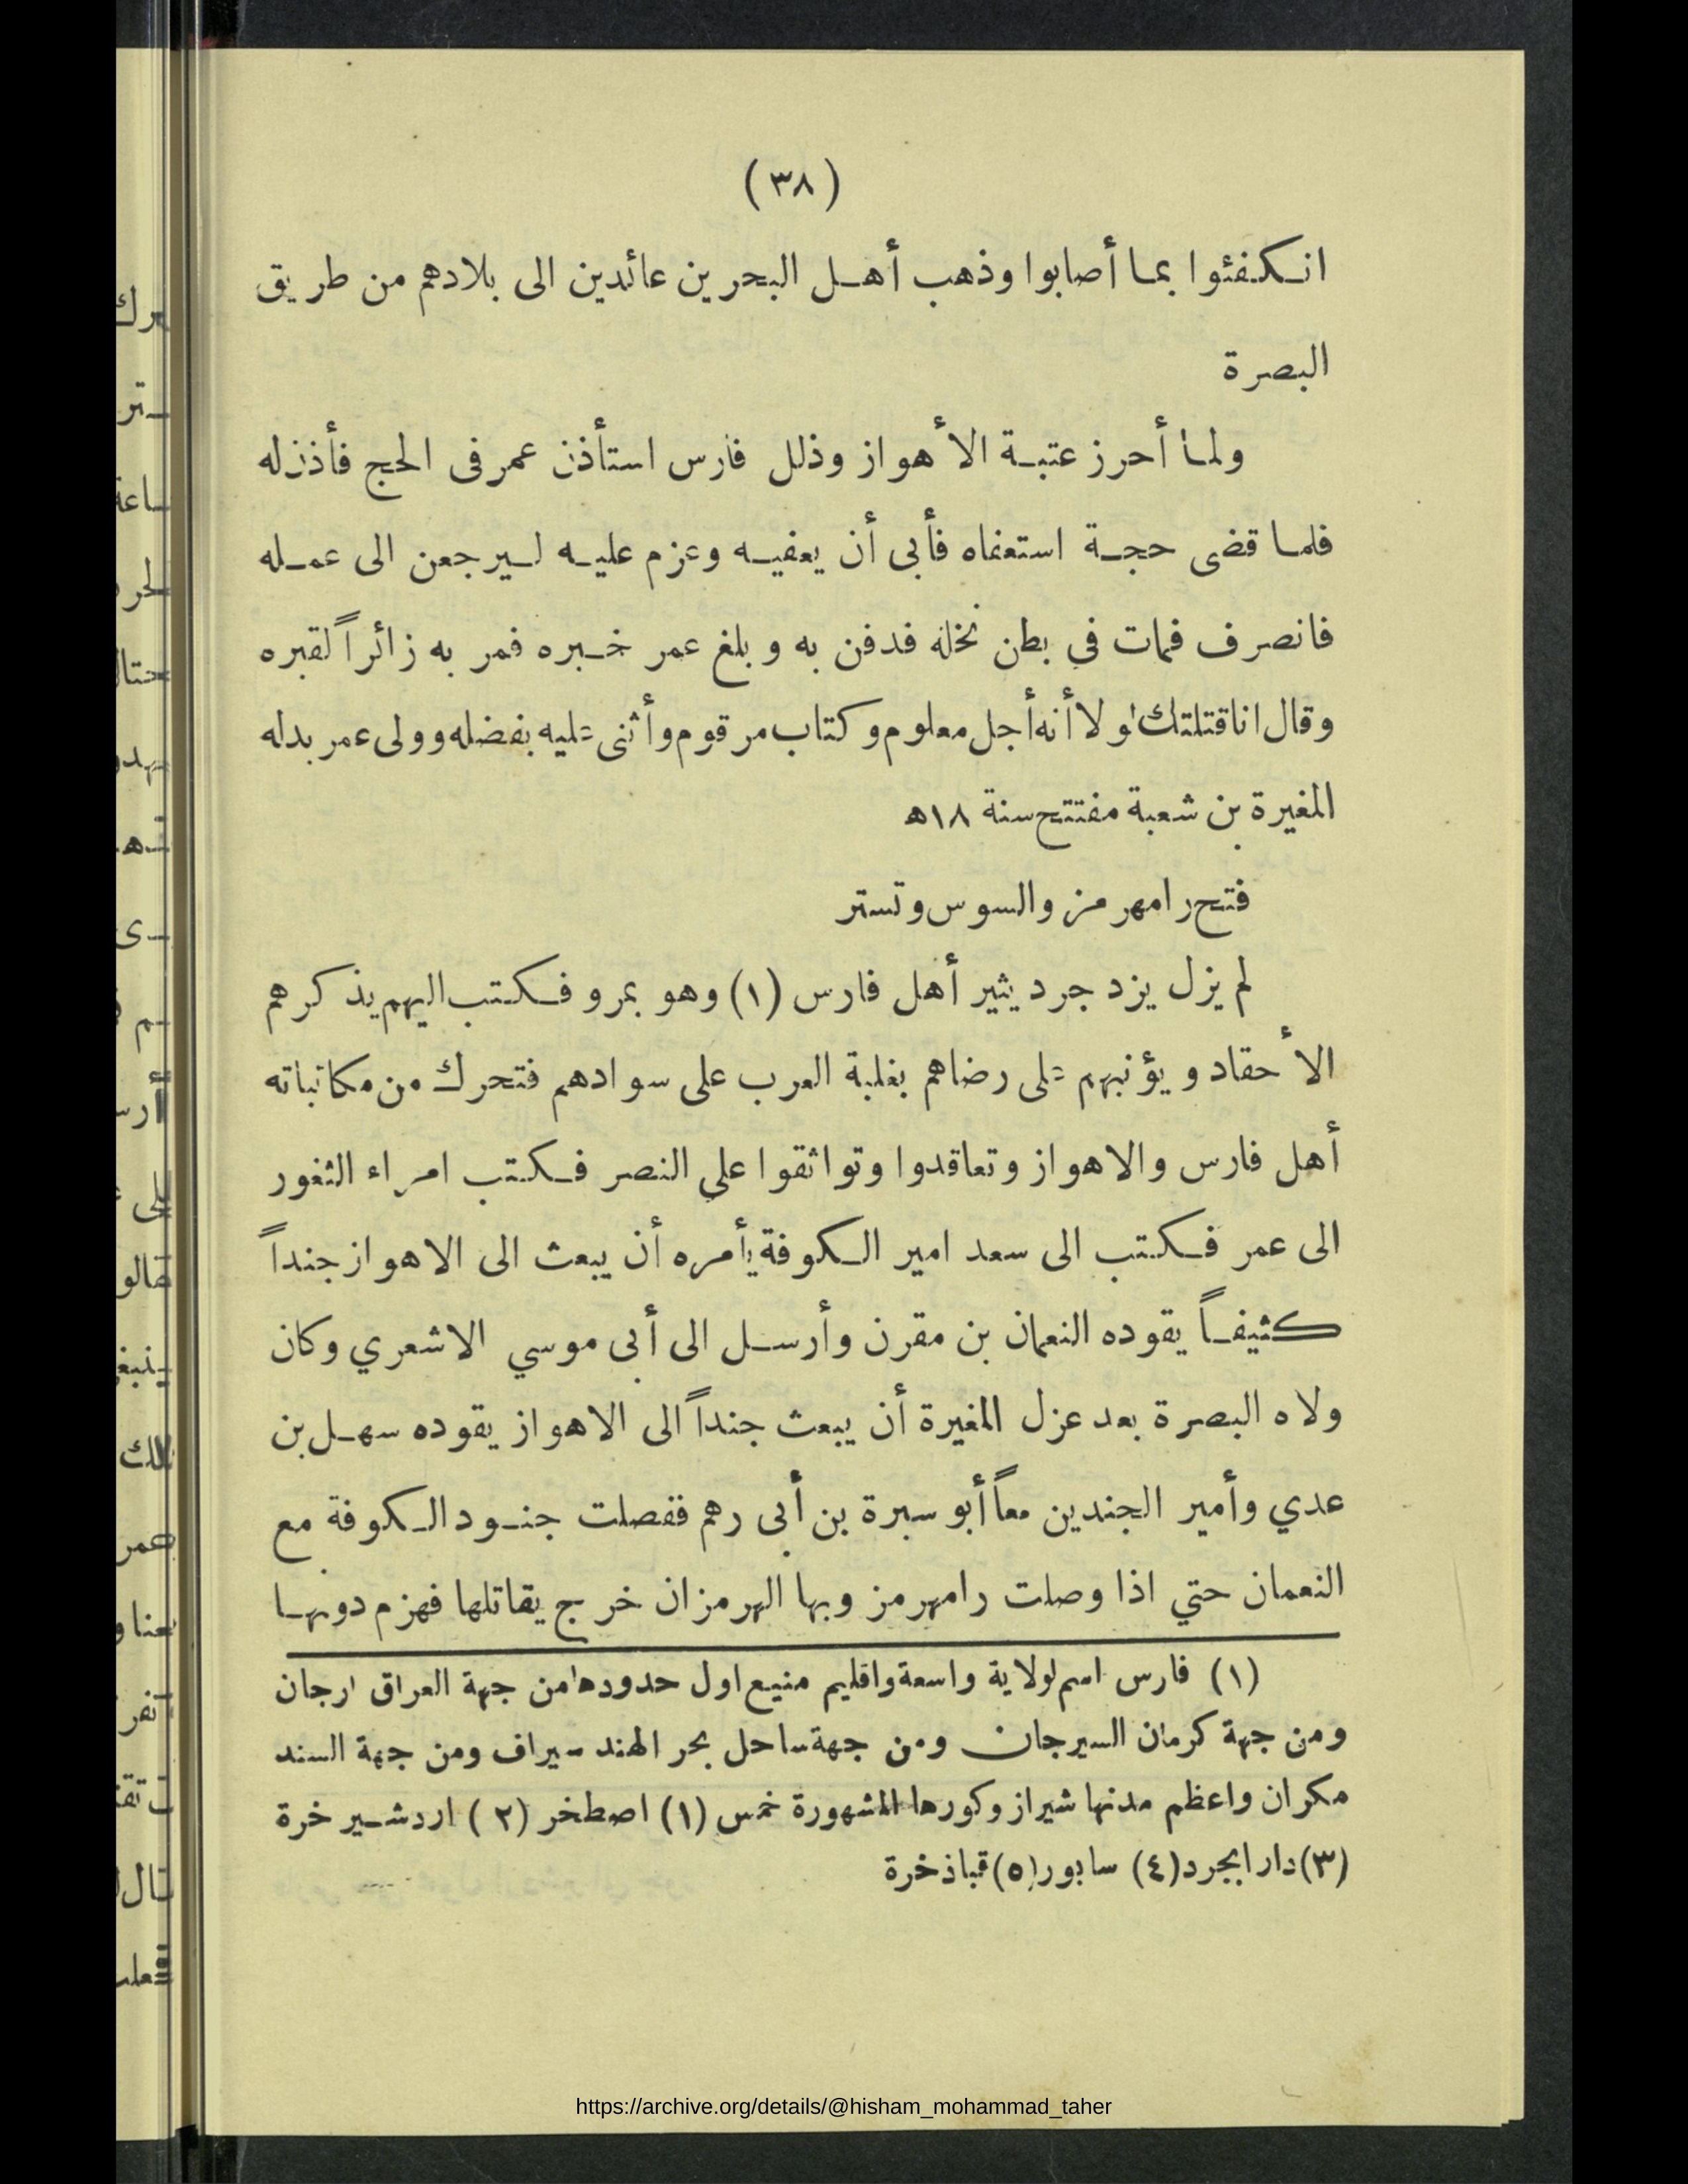 (٣٨)
انكفئوا بما أصابوا وذهب أهل البحرين عائدين الى بلادهم من طريق
البصرة
ولما أحرز عتبة الأهواز وذلل فارس استأذن عمر فى الحج فأذن له
فلما قضى حجة استعفاه فأبى أن يعفيه وعزم عليه ليرجعن الى عمله
فانصرف فمات في بطن نخلة فدفن به وبلغ عمر خبره فمر به زائراً لقبره
وقال انا قتلتك لولا أنه أجل معلوم وكتاب مرقوم وأثنى عليه بفضله وولى عمر بدله
المغيرة بن شعبة مفتتح سنة ١٨ه
فتح رامهرمز والسوس وتستر
لم يزل يزدجرد يثير أهل فارس (١) وهو بمرو فكتب اليهم يذكرهم
الأحقاد ويؤنبهم على رضاهم بغلبة العرب على سوادهم فتحرك من مكاتباته
أهل فارس والاهواز وتعاقدوا وتواثقوا علي النصر فكتب امراء الثغور
الى عمر فكتب الى سعد امير الكوفة يأمره أن يبعث الى الاهواز جنداً
كثيفاً يقوده النعمان بن مقرن وأرسل الى أبى موسي الاشعري وكان
ولاه البصرة بعد عزل المغيرة أن يبعث جنداً الى الاهواز يقوده سهل بن
عدي وأمير الجندين معاً أبو سبرة بن أبى رهم ففصلت جنود الكوفة مع
النعمان حتي اذا وصلت رامهرمز وبها الهرمزان خرج يقاتلها فهزم دونها
(١) فارس اسم لولاية واسعة واقليم منيع اول حدودها من جهة العراق ارجان
ومن جهة كرمان السيرجان ومن جهة ساحل بحر الهند سيراف ومن جهة السند
مكران واعظم مدنها شيراز وكورها المشهورة خمس (١) اصطخر (٢) اردشير خرة
(٣) دار ابجرد (٤) سابور (٥) قباذ خرة
https://archive.org/details/@hisham_mohammad_taher